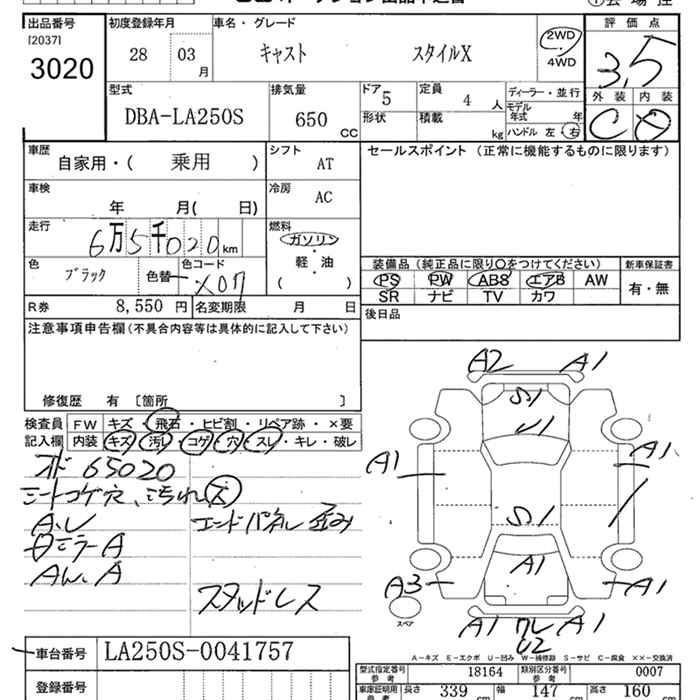 出品番号 初度登録年月 車名・グレード 評価点
[2037]
3020 28 03 月 キャスト スタイルX 2WD・4WD 3.5
型式 排気量 ドア 定員 ディーラー・並行 外装 内装
DBA-LA250S 650 CC 5 4 人 モデル年式 年 C D
形状 積載 kg ハンドル 左・右
車歴 シフト セールスポイント (正常に機能するものに限ります)
自家用・( 乗用 ) AT
車検 冷房
年 月( 日) AC
走行 燃料
6万5千020km ガソリン
軽・油
( )
色 色コード 装備品 (純正品に限り○をつけてください) 新車保証書
ブラック 色替 X07 PS PW ABS エアB AW 有・無
SR ナビ TV カワ
R券 8,550 円 名変期限 月 日 後日品
注意事項申告欄(不具合内容等は具体的に記入して下さい)
修復歴 有 [箇所 ]
検査員 FW キズ・飛石・ヒビ割・リペア跡・×要
記入欄 内装 キズ・汚レ・コゲ・穴・スレ・キレ・破レ
65020
シートコゲ穴、汚れ
A.レ エンドパネル歪み
ミラーA
スタッドレス
A2 A1
S1
U1
A1 A1
S1
A1
A3 A1
スペア
A1 ワレ A1
U2
A-キズ E-エクボ U-凹み W-補修跡 S-サビ C-腐食 ××-交換済
車台番号 LA250S-0041757
登録番号
型式指定番号 参考 18164 類別区分番号 参考 0007
車庫証明用 参考 長さ 339 cm 幅 147 cm 高さ 160 cm